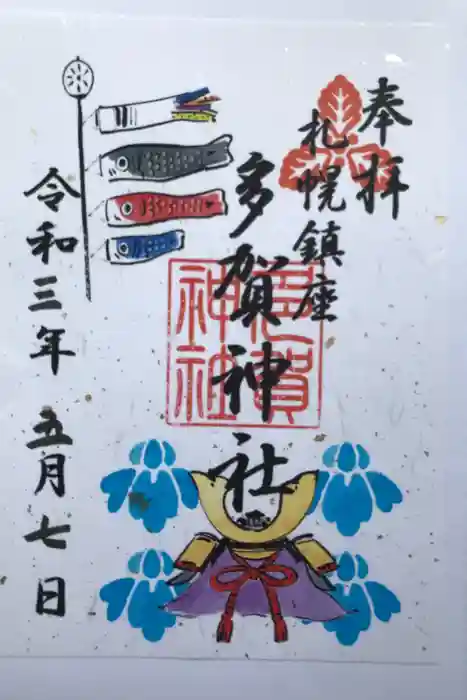 奉拝
札幌鎮座
多賀神社
多賀
神社
令和三年 五月七日